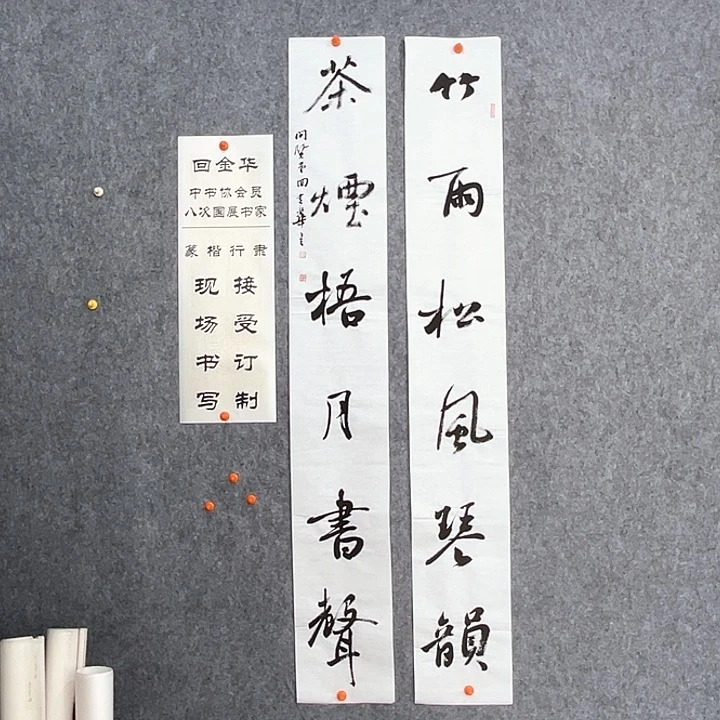 竹雨松風琴韻
茶煙梧月書聲
回金华
中书协会员
八次国展书家
篆楷行隶
接受订制
现场书写